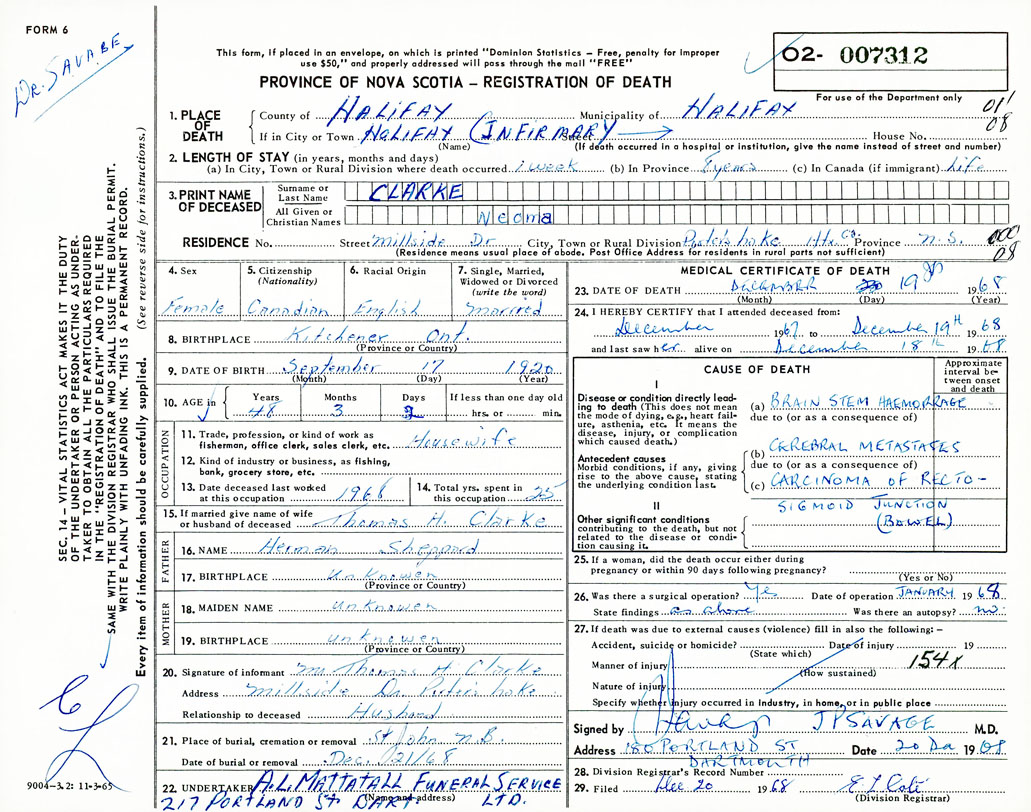 FORM 6
DR. SAVAGE
This form, if placed in an envelope, on which is printed "Dominion Statistics – Free, penalty for improper
use $50," and properly addressed will pass through the mail "FREE"
O2- 007312
For use of the Department only
PROVINCE OF NOVA SCOTIA – REGISTRATION OF DEATH
011
08
1. PLACE OF DEATH
County of HALIFAX Municipality of HALIFAX
If in City or Town HALIFAX (INFIRMARY) Street House No.
(Name) (If death occurred in a hospital or institution, give the name instead of street and number)
2. LENGTH OF STAY (in years, months and days)
(a) In City, Town or Rural Division where death occurred 1 week (b) In Province 8 years (c) In Canada (if immigrant) Life
3. PRINT NAME OF DECEASED
Surname or Last Name CLARKE
All Given or Christian Names Neoma
RESIDENCE No. Street Millside Dr. City, Town or Rural Division Porters Lake Hx. Co. Province N.S.
(Residence means usual place of abode. Post Office Address for residents in rural parts not sufficient)
000
08
4. Sex Female
5. Citizenship (Nationality) Canadian
6. Racial Origin English
7. Single, Married, Widowed or Divorced (write the word) Married
8. BIRTHPLACE Kitchener Ont.
(Province or Country)
9. DATE OF BIRTH September 17 1920
(Month) (Day) (Year)
10. AGE in Years 48 Months 3 Days 2 If less than one day old hrs. or min.
OCCUPATION
11. Trade, profession, or kind of work as fisherman, office clerk, sales clerk, etc. Housewife
12. Kind of industry or business, as fishing, bank, grocery store, etc.
13. Date deceased last worked at this occupation 1968
14. Total yrs. spent in this occupation 25
15. If married give name of wife or husband of deceased Thomas H. Clarke
FATHER
16. NAME Herman Sheppard
17. BIRTHPLACE unknowen
(Province or Country)
MOTHER
18. MAIDEN NAME unknowen
19. BIRTHPLACE unknowen
(Province or Country)
20. Signature of informant Mr. Thomas H Clarke
Address Millside Dr. Porters Lake
Relationship to deceased Husband
21. Place of burial, cremation or removal St John N.B.
Date of burial or removal Dec. 21/68
22. UNDERTAKER A.L. MATTATALL FUNERAL SERVICE
(Name and address)
217 PORTLAND ST DART LTD.
MEDICAL CERTIFICATE OF DEATH
23. DATE OF DEATH DECEMBER 19 1968
(Month) (Day) (Year)
24. I HEREBY CERTIFY that I attended deceased from:
December 1967 to December 19th 1968
and last saw her alive on December 18th 1968
CAUSE OF DEATH
Approximate interval between onset and death
I
Disease or condition directly leading to death (This does not mean the mode of dying, e.g., heart failure, asthenia, etc. It means the disease, injury, or complication which caused death.)
(a) BRAIN STEM HAEMORRAGE
due to (or as a consequence of)
Antecedent causes
Morbid conditions, if any, giving rise to the above cause, stating the underlying condition last.
(b) CEREBRAL METASTASES
due to (or as a consequence of)
(c) CARCINOMA OF RECTO-
SIGMOID JUNCTION
(BOWEL)
II
Other significant conditions contributing to the death, but not related to the disease or condition causing it.
25. If a woman, did the death occur either during pregnancy or within 90 days following pregnancy?
(Yes or No)
26. Was there a surgical operation? Yes Date of operation JANUARY 1968
State findings as above Was there an autopsy? no.
27. If death was due to external causes (violence) fill in also the following: –
Accident, suicide or homicide? Date of injury 19
(State which)
154X
Manner of injury
(How sustained)
Nature of injury
Specify whether injury occurred in Industry, in home, or in public place
Signed by J P SAVAGE M.D.
Address 180 PORTLAND ST Date 20 Dec 1968
DARTMOUTH
28. Division Registrar's Record Number
29. Filed Dec 20 1968
(Division Registrar)
SEC. 14 – VITAL STATISTICS ACT MAKES IT THE DUTY
OF THE UNDERTAKER OR PERSON ACTING AS UNDER-
TAKER TO OBTAIN ALL THE PARTICULARS REQUIRED
IN THE "REGISTRATION OF DEATH" AND TO FILE THE
SAME WITH THE DIVISION REGISTRAR WHO SHALL ISSUE THE BURIAL PERMIT.
WRITE PLAINLY WITH UNFADING INK. THIS IS A PERMANENT RECORD.
Every item of information should be carefully supplied. (See reverse side for instructions.)
9004-3.2: 11-3-65